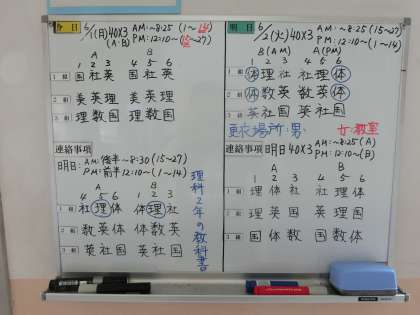 今日 6/1(月)40X3 AM:~8:25 (1~14)
(A·B) PM:12:10~(15~27)
A B
1 2 3 4 5 6
1組 国社英 国社英
2組 美英理 美英理
3組 理数国 理数国
連絡事項
明日: AM:後半~8:30(15~27)
PM:前半12:10~(1~14)
A B
4 5 6 1 2 3
1組 社理体 体理社
2組 数英体 体数英
3組 英社国 英社国
理科2年の教科書
明日 6/2(火)40X3 AM:~8:25(15~27)
PM:12:10~(1~14)
B(AM) A(PM)
1 2 3 4 5 6
1組 体理社 社理体
2組 体数英 数英体
3組 英社国 英社国
更衣場所:男: 女:教室
連絡事項 明日40X3 AM:~8:25(A)
PM:12:10~(B)
A B
1 2 3 4 5 6
1組 理体社 社理体
2組 理英美 理英美
3組 国体数 国数体